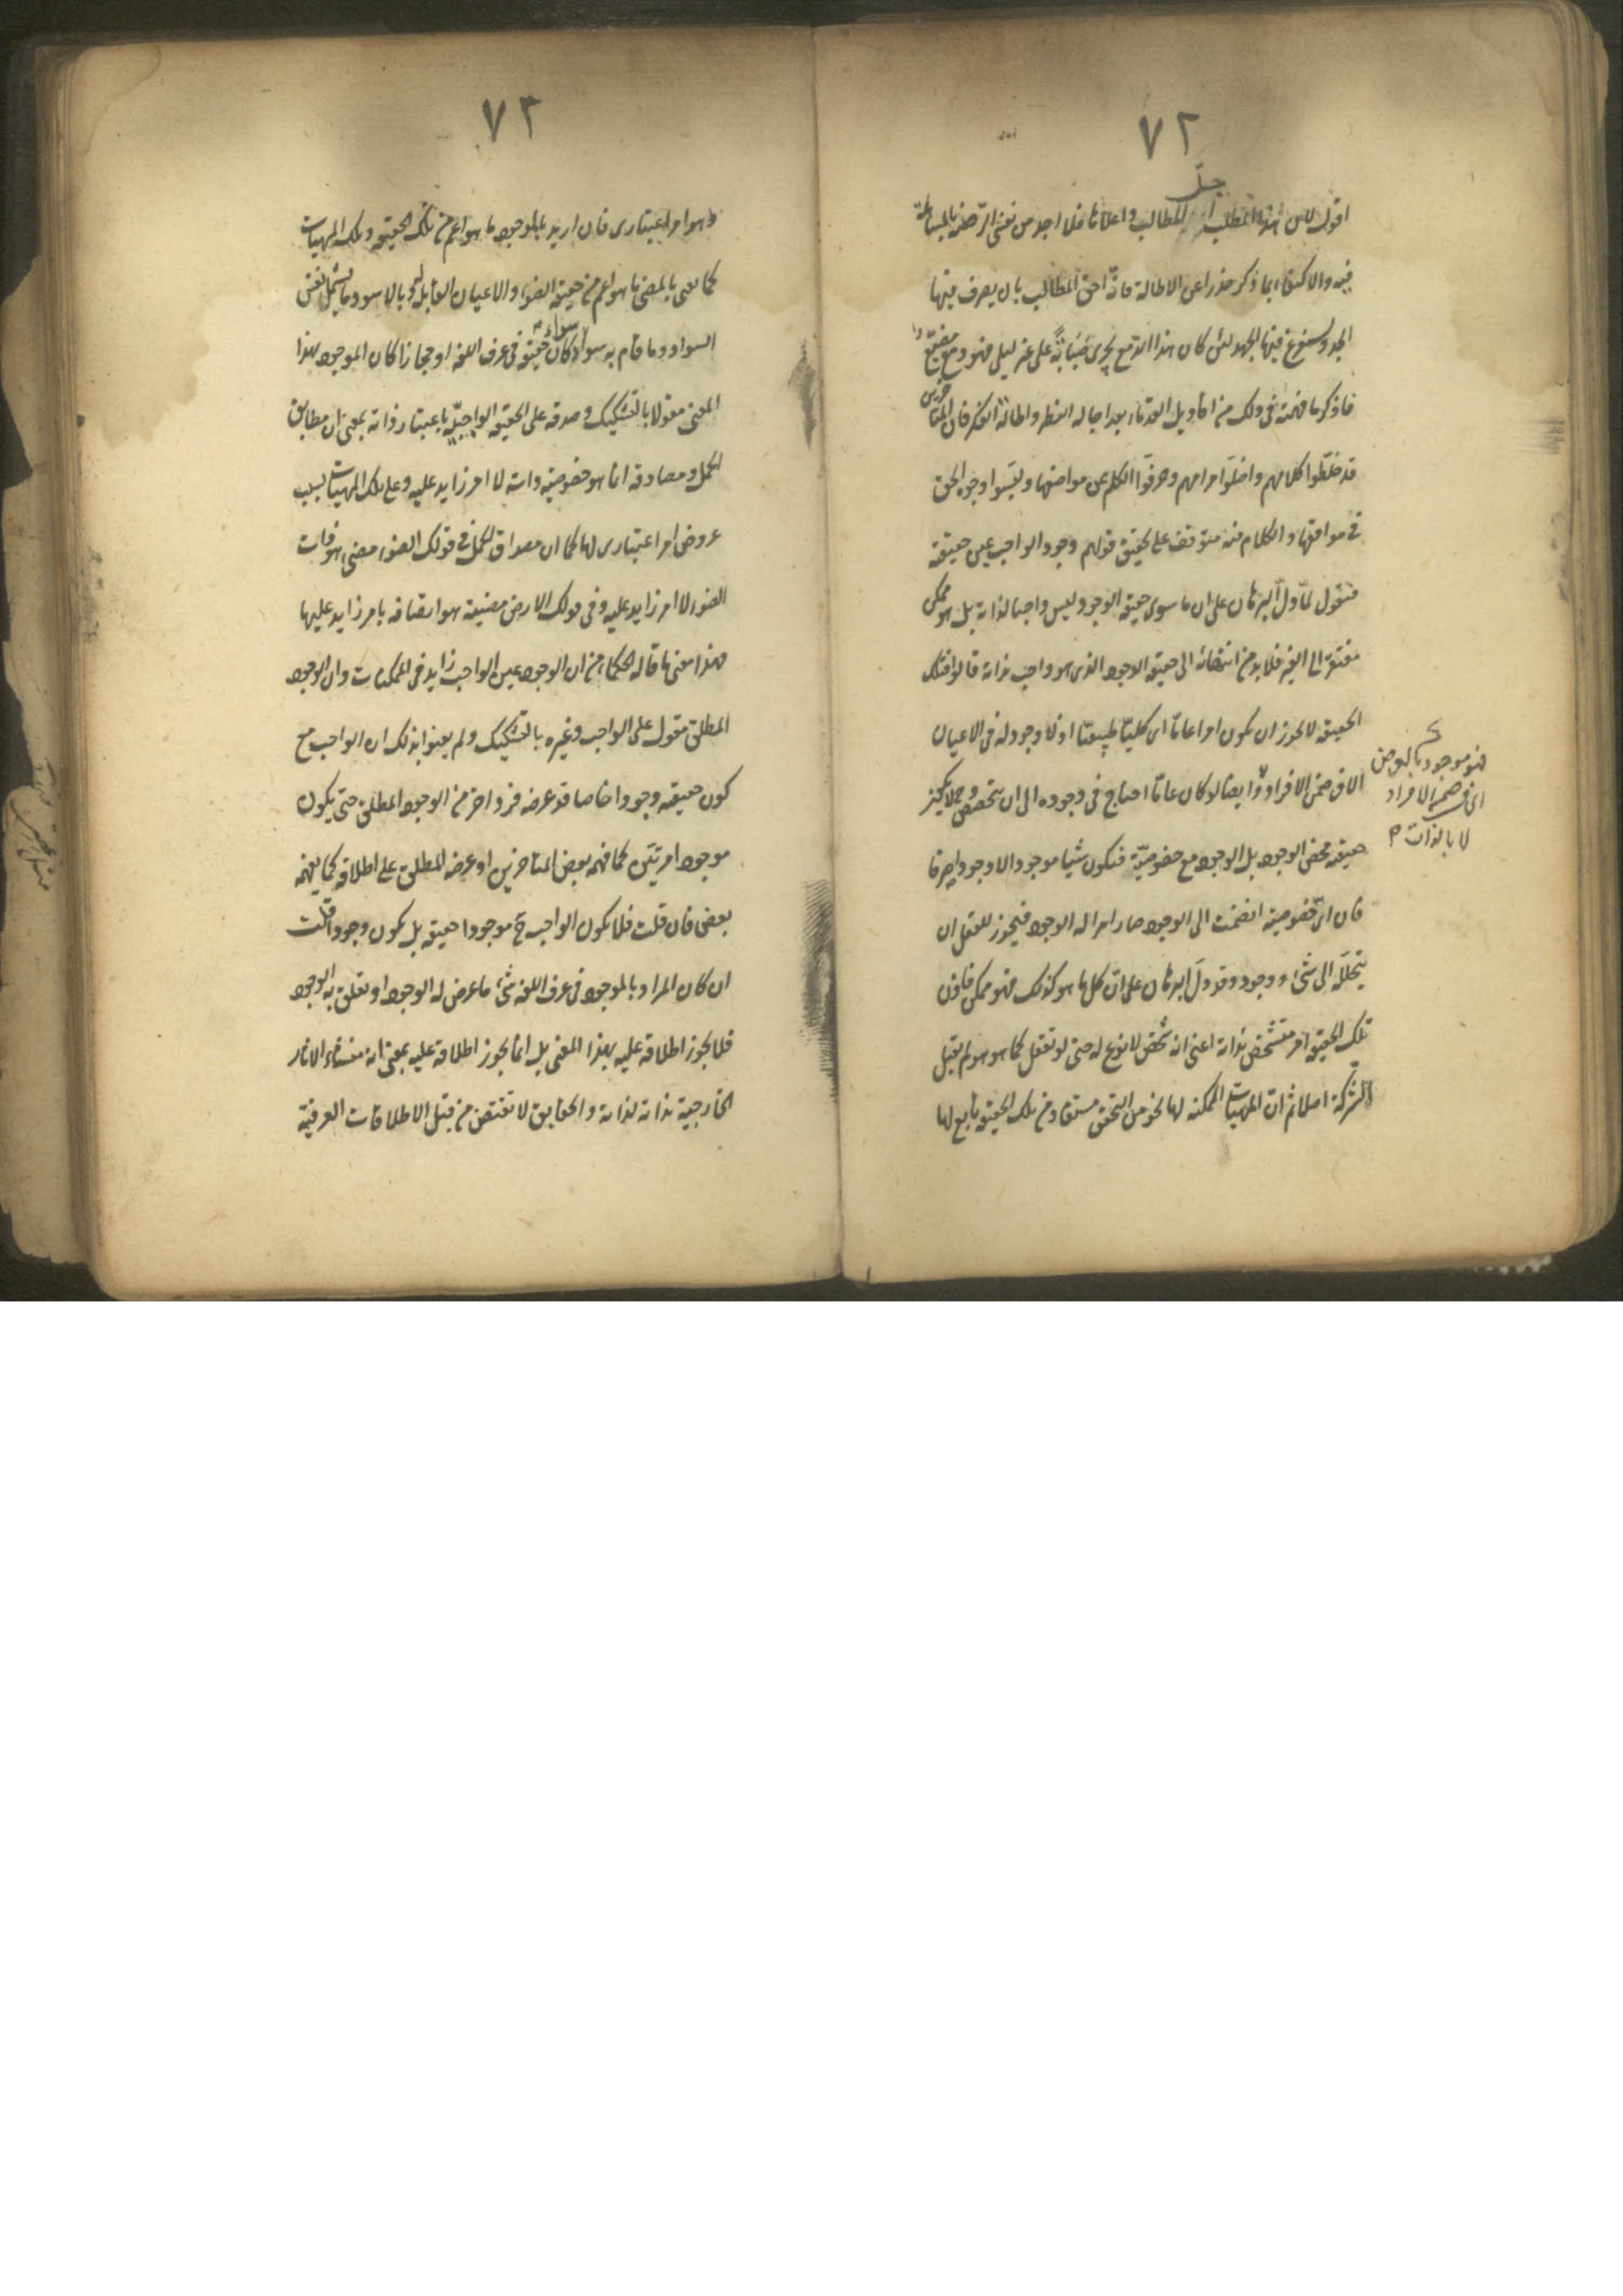 ٧٢
اقول لان هذا المطلب جلّ المطالب واعلاها فلا اجد من نفسى الرخصة بالمساهلة
فيه والاكتفاء بما ذكر حذرا عن الاطالة فانه احق المطالب بان يصرف فيها
الجد ويستفرغ فيها الجهد لئن كان هذا الدمع يجرى صبابة على غير ليلى فهو دمع مضيع
فاذكر ما فهمته فى ذلك من اقاويل القدماء بعد اجالة النظر واطالة الفكر فان المتأخرين
قد خلطوا كلامهم واخلوا مرامهم وحرفوا الكلم عن مواضعها ولبسوا وجوه الحق
فى مواقعها والكلام فيه متوقف على تحقيق قولهم وجود الواجب عين حقيقته
فنقول لما دل البرهان على ان ما سوى حقيقة الوجود ليس واجبا لذاته بل هو ممكن
مفتقر الى الغير فلا بد من انتهائه الى حقيقة الوجود الذى هو واجب بذاته قالوا فتلك
الحقيقة لا يجوز ان يكون امرا عاما اى كليا طبيعيا اذ لا وجود له فى الاعيان
الا فى ضمن الافراد وايضا لو كان عاما احتاج فى وجوده الى ان يتخصص وح لا يكون
حقيقة محض الوجود بل الوجود مع خصوصية فيكون شيئا موجودا لا وجودا صرفا
فان اى خصوصية انضمت الى الوجود صار امرا له الوجود فيجوز للعقل ان
يحلله الى شئ ووجود وقد دل البرهان على ان كل ما هو كذلك فهو ممكن فاذن
تلك الحقيقة امر متشخص بذاته اعنى انه شخص لا نوع له حتى لو تعقل كما هو هو لم يقبل
الشركة اصلا ثم ان المهيات الممكنة لها نحو من التحقق مستفاد من تلك الحقيقة تابع لها
فهو موجود بالعرض
اى فى ضمن الافراد
لا بالذات
٧٣
وهو امر اعتبارى فان اريد بالموجود ما هو اعم من تلك الحقيقة وتلك المهيات
كما يعنى بالمضئ ما هو اعم من حقيقة الضوء والاعيان القابلة له وبالاسود ما يشمل نفس
السواد وما قام به سواء كان حقيقة فى عرف اللغة او مجازا كان الموجود بهذا
المعنى مقولا بالتشكيك وصدقه على الحقيقة الواجبية باعتبار ذاته بمعنى ان مطابق
الحمل ومصادقه انما هو خصوصية ذاته لا امر زايد عليه وعلى تلك المهيات بسبب
عروض امر اعتبارى لها كما ان مصداق الحمل فى قولك الضوء مضئ هو ذات
الضوء لا امر زايد عليه وفى قولك الارض مضيئة هو اتصافه بامر زايد عليها
فهذا معنى ما قاله الحكماء من ان الوجود عين الواجب زايد فى الممكنات وان الوجود
المطلق مقول على الواجب وغيره بالتشكيك ولم يعنوا بذلك ان الواجب مع
كون حقيقته وجودا خاصا قد عرضه فرد اخر من الوجود المطلق حتى يكون
موجودا مرتين كما فهمه بعض المتاخرين او عرضه المطلق على اطلاقه كما يفهمه
بعض فان قلت فلا يكون الواجب ح موجودا حقيقة بل يكون وجودا قلت
ان كان المراد بالموجود فى عرف اللغة شئ ما عرض له الوجود او تعلق به الوجود
فلا يجوز اطلاقه عليه بهذا المعنى بل انما يجوز اطلاقه عليه بمعنى انه منشاء الاثار
الخارجية بذاته لذاته والحقايق لا تقتنص من قبل الاطلاقات العرفية